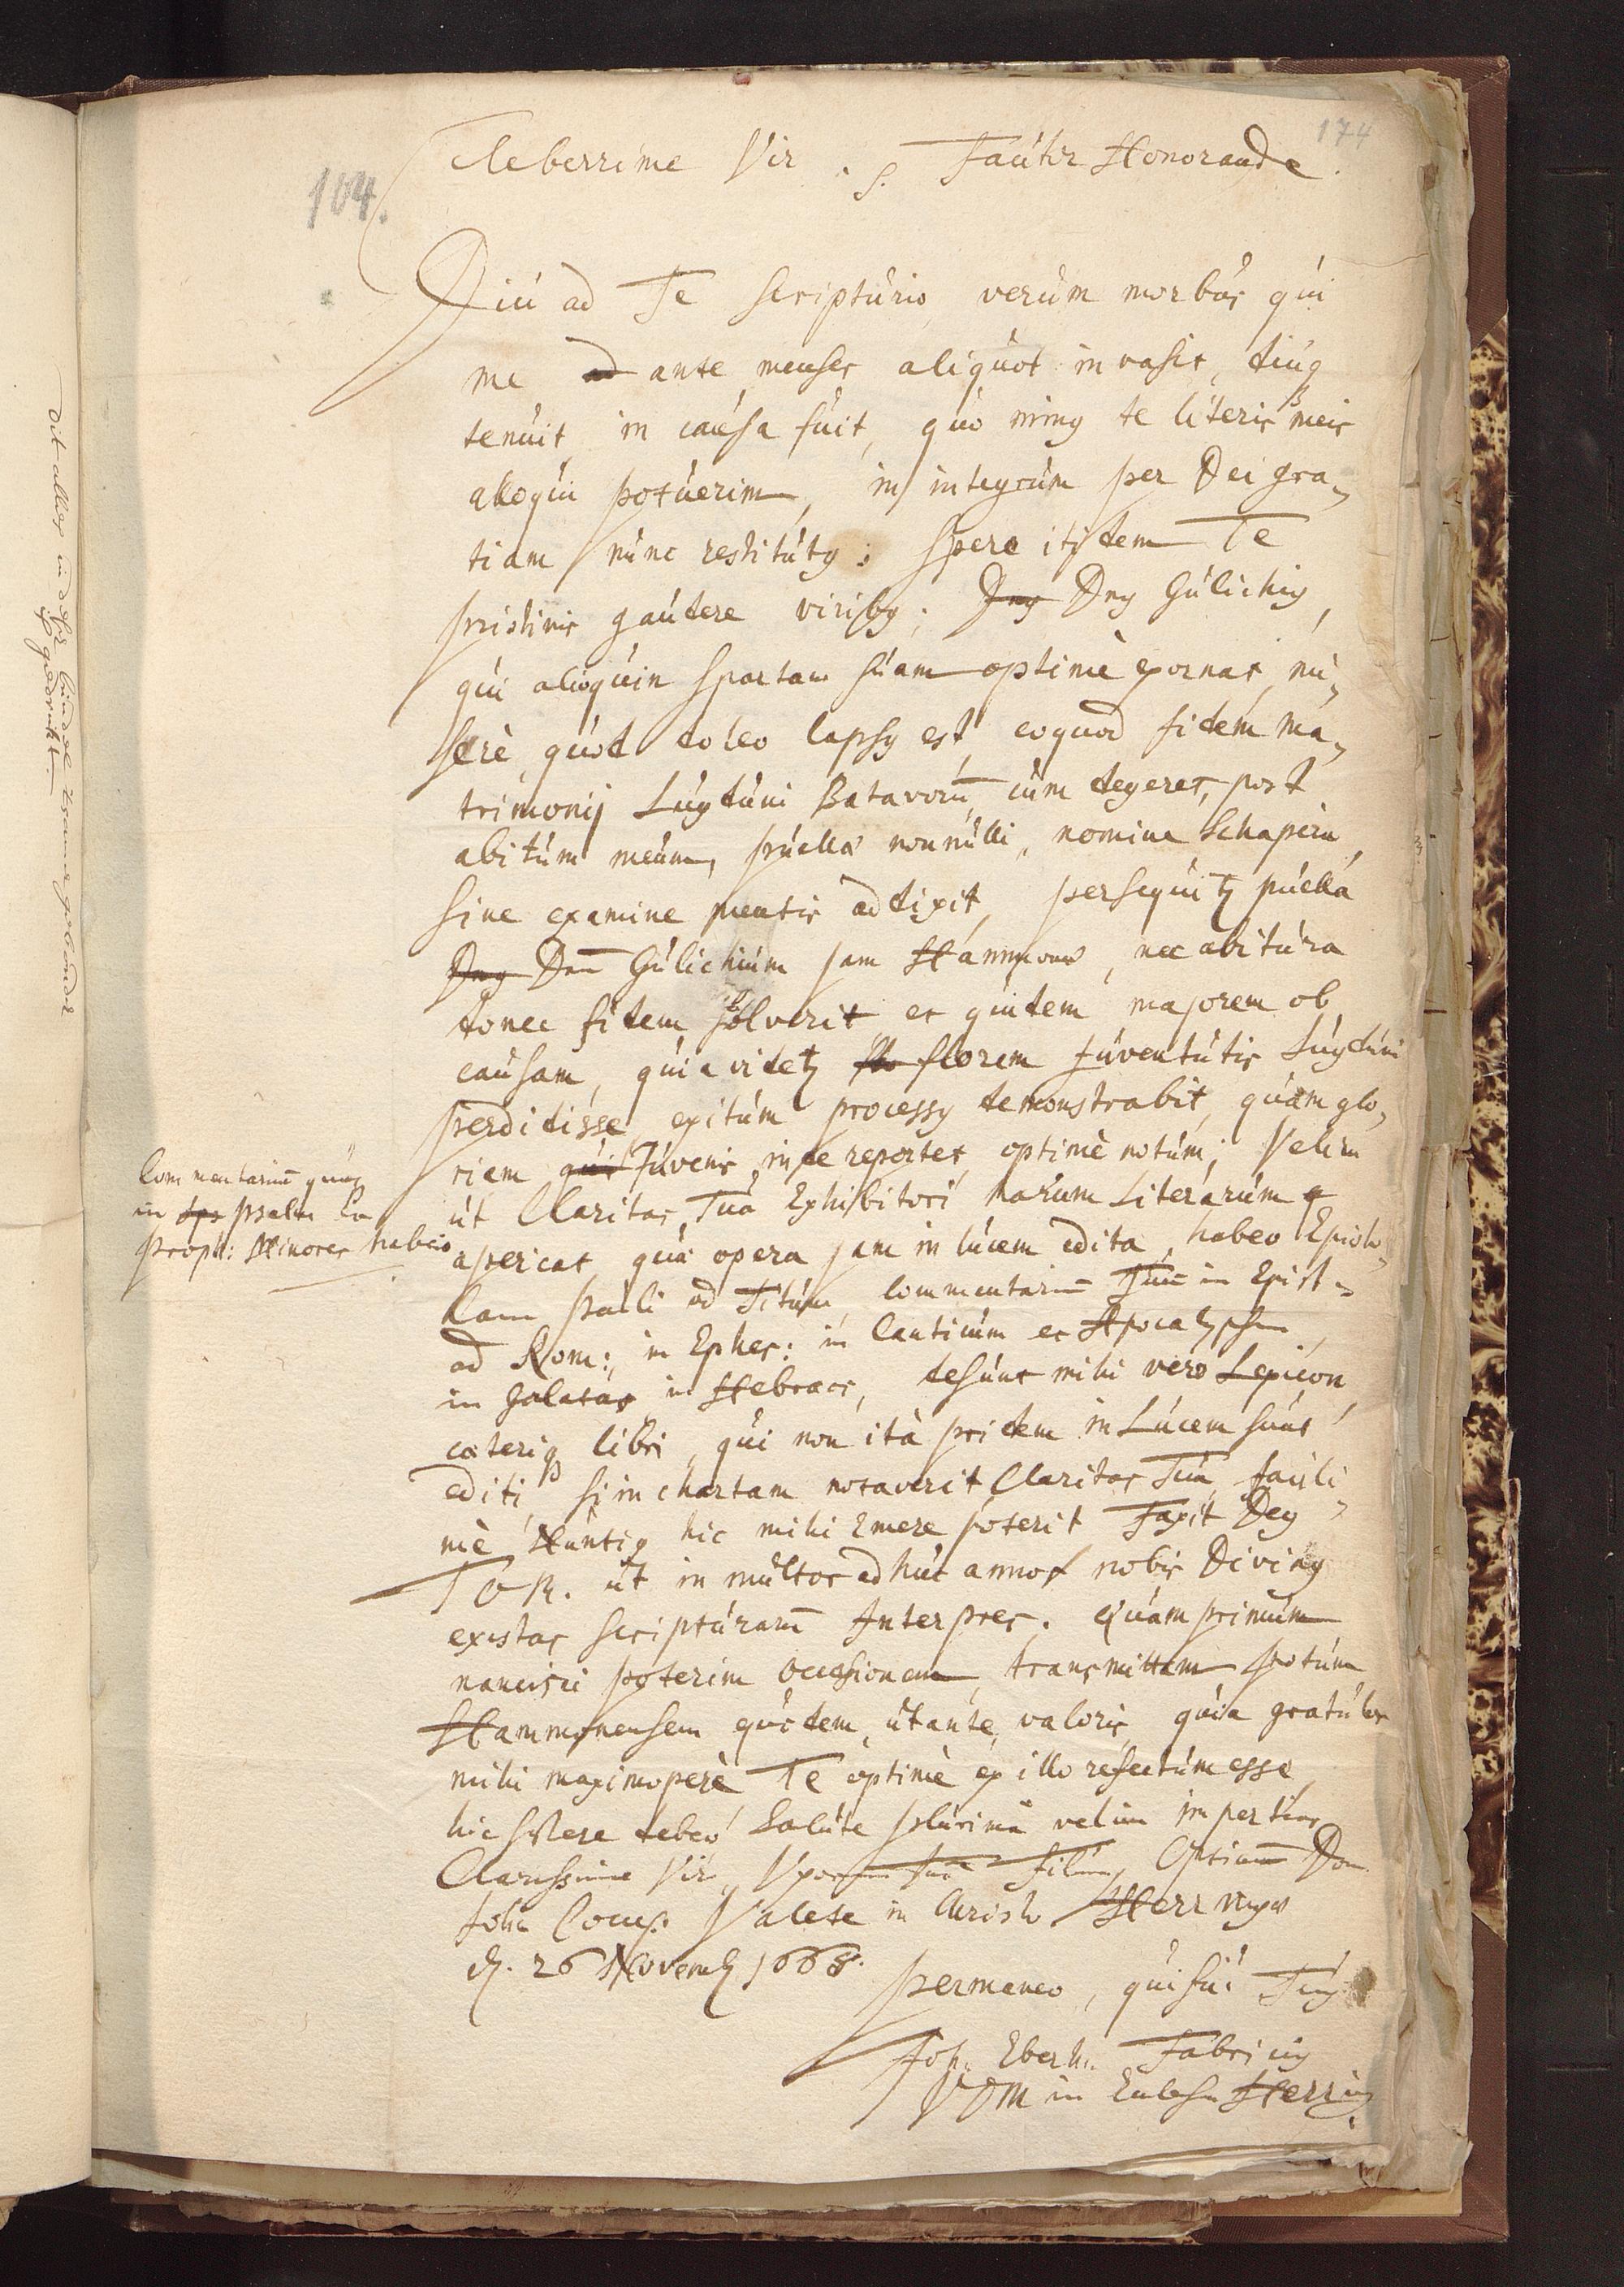 174
104.
Celeberrime Vir. S. Fautor Honorande.
Diu ad Te scripturio, verùm morbus qui
me ad ante menses aliquot invasit, diuq
tenuit, in causa fuit, quo ming te literis meis
alloqui potuerim, in integrum per Dei gra-
tiam nunc restitutg: Spero itidem Te
pristinis gaudere viribg; Dng Dng Gulichig,
qui alioquin Spartam suam optimè exornat, mi-
serè, quod doleo lapsg est, eoquod fidem ma-
trimonij Lugduni Batavorū, cùm degeret, post
abitum meum, puellæ nonnulli, nomine Schaperi,
sine examine mentis addixit, persequitz puella
Dng Dnū Gulichium jam Hammonæ, nec abitura
donec fidem solverit et quidem majorem ob
causam, quia videtz flo florem juventutis Lugduni
perdidisse, exitum processg demonstrabit, quàm glo-
riam qui Juvenis inde reportet optimè notum; Velim
ut Claritas Tua Exhibitori harum Literarum
aperiat quæ opera jam in lucem edita, habeo Episto-
lam Pauli ad Titum, Commentariū Tuū in Epist.
ad Rom:, in Ephes: in Canticum et Apocalypsin,
in Galatas in Hebraeos, desunt mihi vero Lexicon,
cæteriq libri, qui non ità pridem in Lucem sunt
editi, si in chartam notaverit Claritas Tua, facili-
mè Nuntig hic mihi Emere poterit Faxit Deg
TOM. ut in multos adhuc annos nobis Diving
existas Scripturarū Interpres. Quam primùm
nancisci poterim occasionem, transmittam potum
Hammonensem ejusdem, ut ante, valoris, quia gratulor
mihi maximoperè Te optimè ex illo refectum esse,
hic sistere debeo Salute plurimâ velim impertias
Clarissime Vir, Uxorem Tuā Filium, Optimum Dom.
Joh. Coccej. Valete in Christo Herringæ
d. 26 Novemb 1668.
permaneo, qui fui Tug
Joh. Eberh. Fabricig
VDM in Eccles. Herring
Commentariū quoq
in Psalm Ca
Proph: Minores habeo